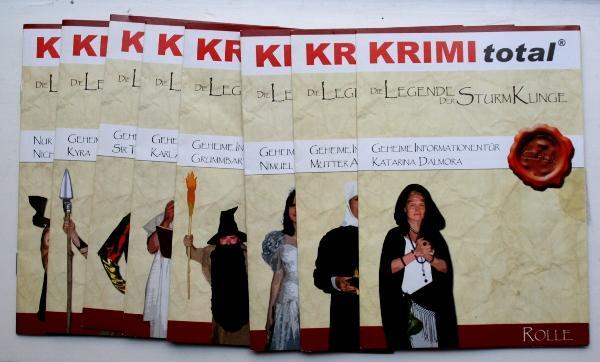 K
DIE L
NUR
NICH
K
DIE L
GEHEIME
KYRA
KR
DIE L
GEHEI
SIR T
KR
DIE L
GEHEIME
KARL
KR
DIE LEG
GEHEIME IN
GRUMMBAR
KR
DIE LE
GEHEIM
NIMUEL
KR
DIE LEGE
GEHEIME IN
MUTTER A
KRIMI total®
DIE LEGENDE
DER STURMKLINGE
GEHEIME INFORMATIONEN FÜR
KATARINA DALMORA
ROLLE